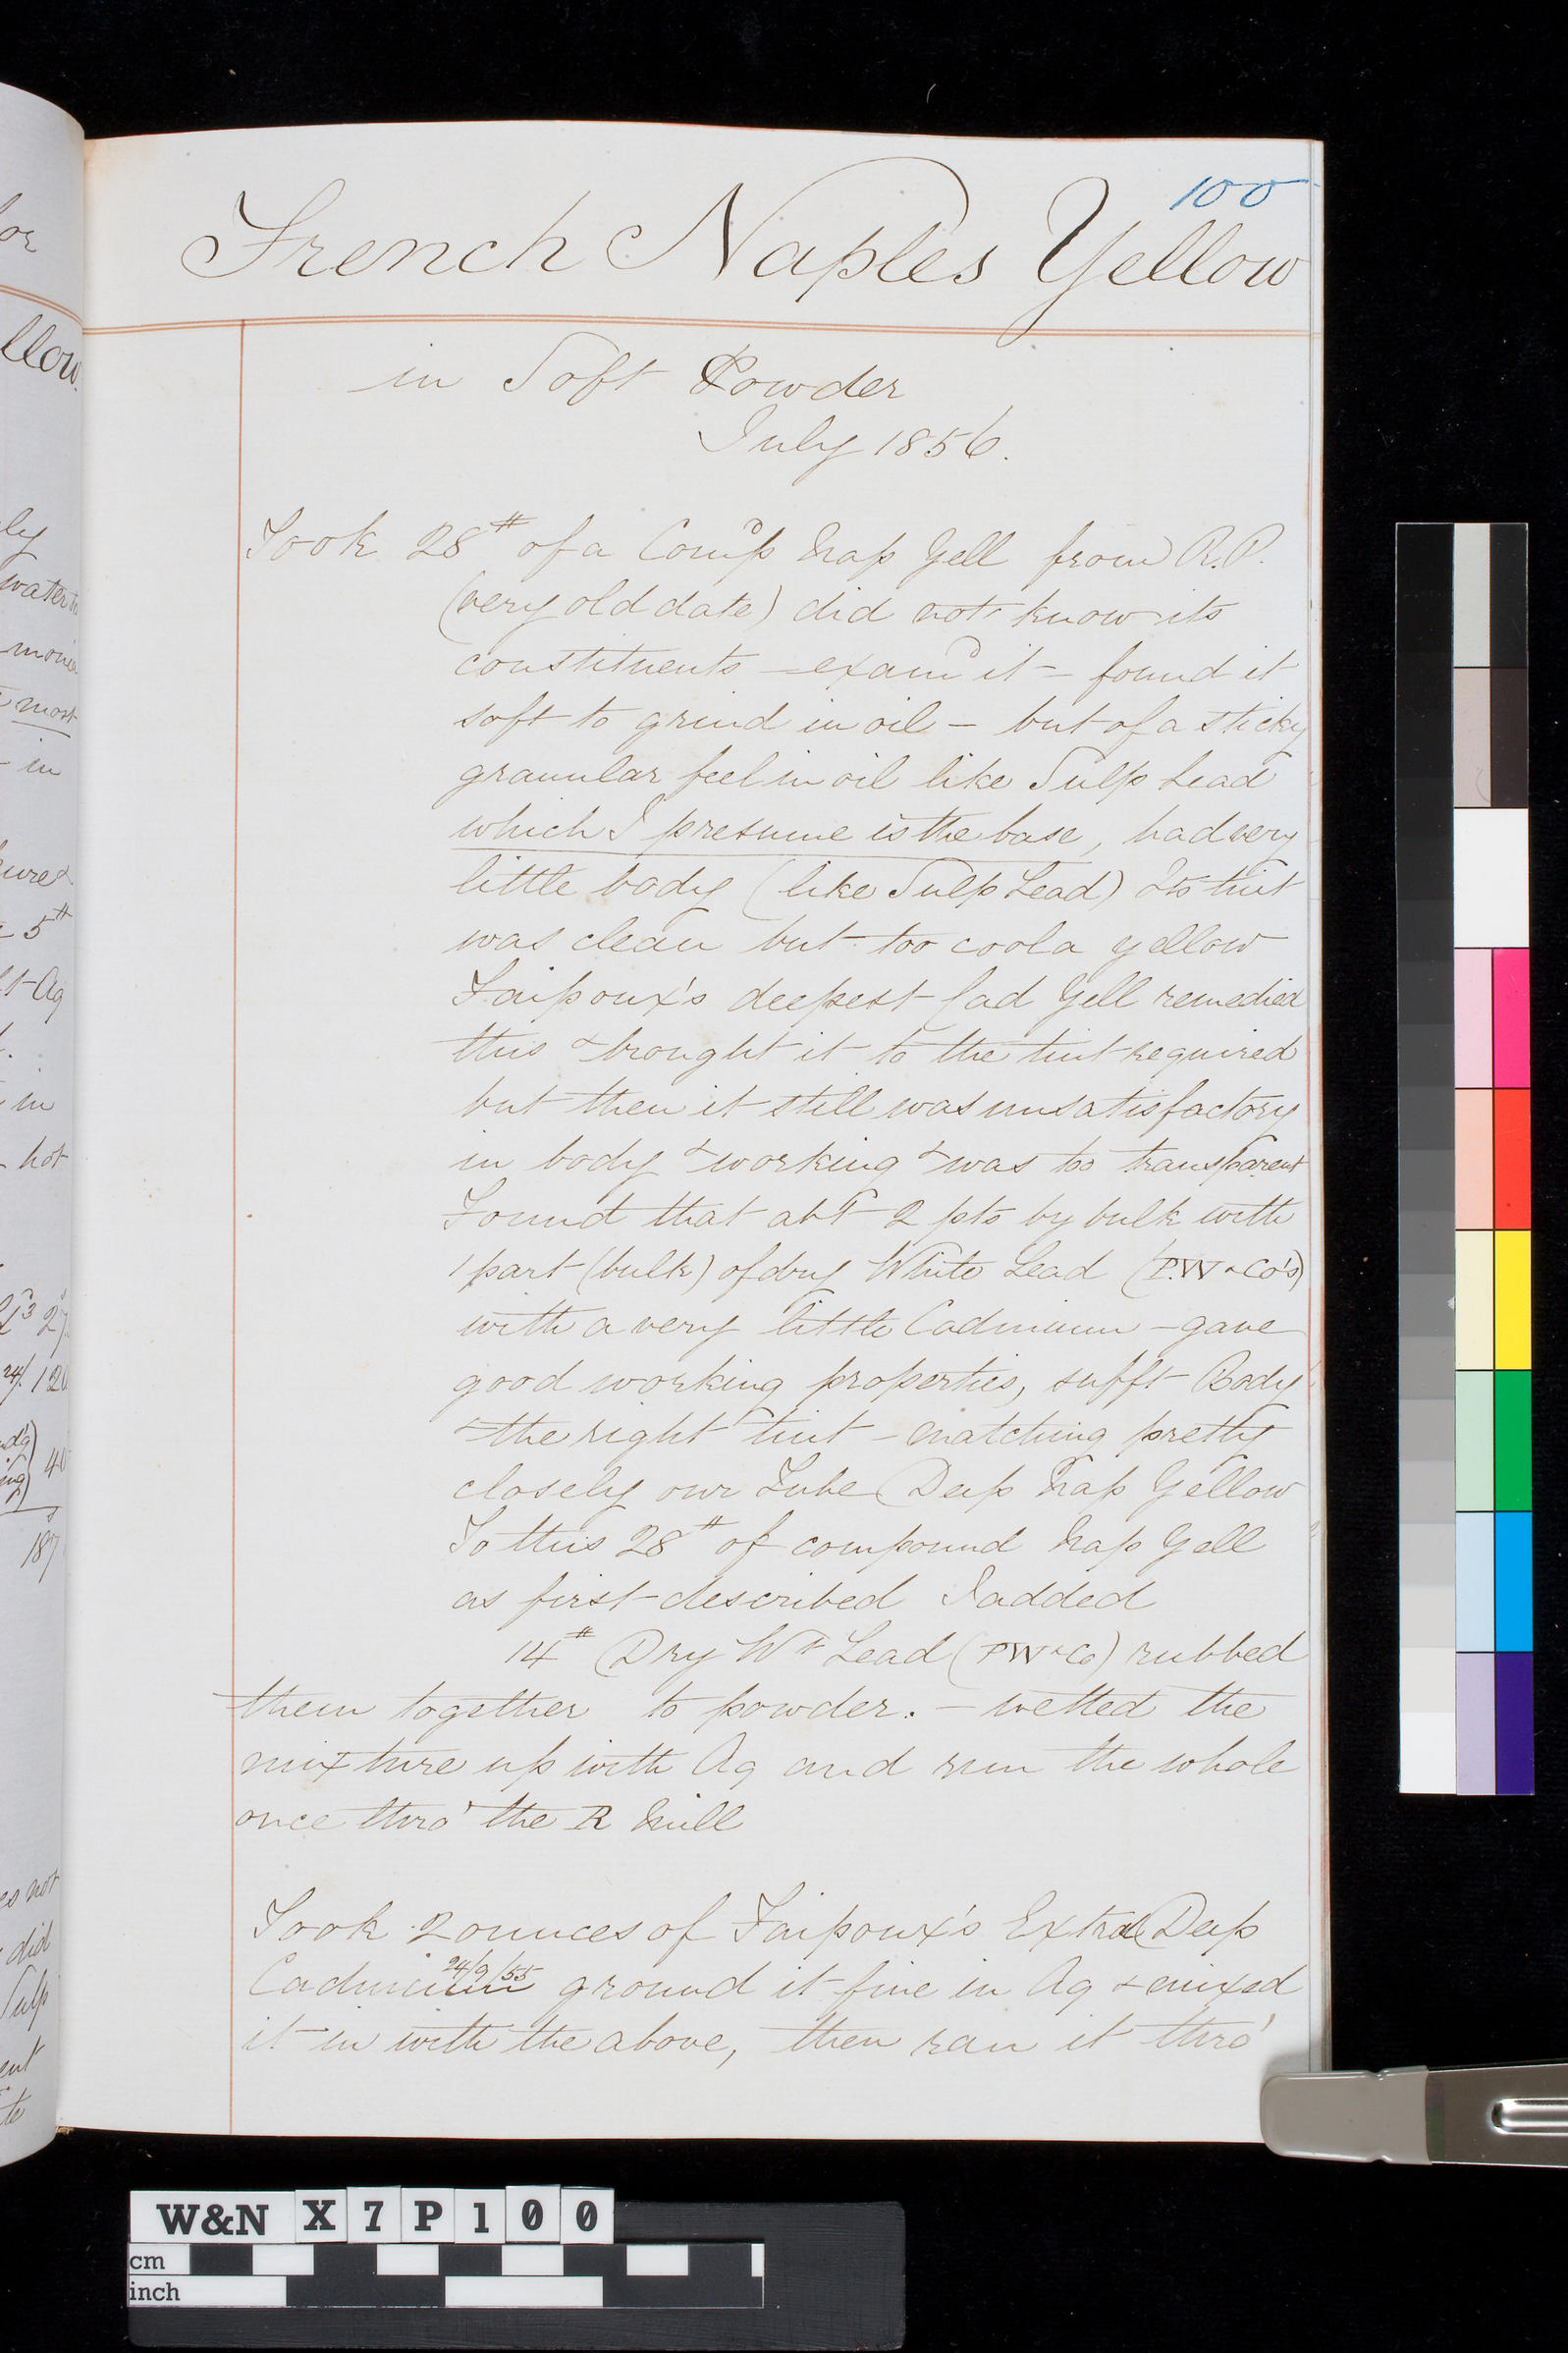 100
French Naples Yellow
in Soft Powder
July 1856.
Took 28# of a Comp^d Nap Yell from R.P.
(very old date) did not know its
constituents – exam^d it – found it
soft to grind in oil – but of a sticky
granular feel in oil like Sulp Lead
which I presume is the base, had very
little body (like Sulp Lead) Its tint
was clean but too cool a yellow
Faipoux's deepest Cad Yell remedied
this & brought it to the tint required
but then it still was unsatisfactory
in body & working & was too transparent
Found that abt 2 pts by bulk with
1 part (bulk) of dry White Lead (P.W & Co's)
with a very little Cadmium – gave
good working properties, sufft Body
& the right tint – matching pretty
closely our Tube Deep Nap Yellow
To this 28# of compound Nap Yell
as first described I added
14# Dry Wt Lead (PW & Co) rubbed
them together to powder. – wetted the
mixture up with Aq and run the whole
once thro' the R Mill
Took 2 ounces of Faipoux's Extra Deep
24/9/55
Cadmium ground it fine in Aq & mixed
it in with the above, then ran it thro'
or
llow.
ly
water
most
in
5#
Aq
in
hot
27
24/. 120
40
187
not
did
Sulp
W&N X7P100
cm
inch